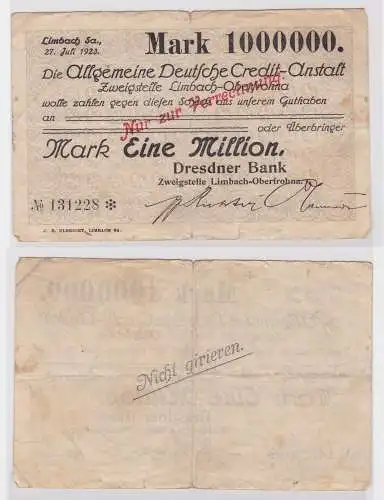 Limbach Sa.,
27. Juli 1923.
Mark 1000000.
Die Allgemeine Deutsche Credit-Anstalt
Zweigstelle Limbach-Oberfrohna
wolle zahlen gegen diesen Scheck aus unserem Guthaben
an
oder Überbringer
Nur zur Verrechnung.
Mark Eine Million.
Dresdner Bank
Zweigstelle Limbach-Oberfrohna.
№ 131228 *
LIMBACH SA.
Nicht girieren.